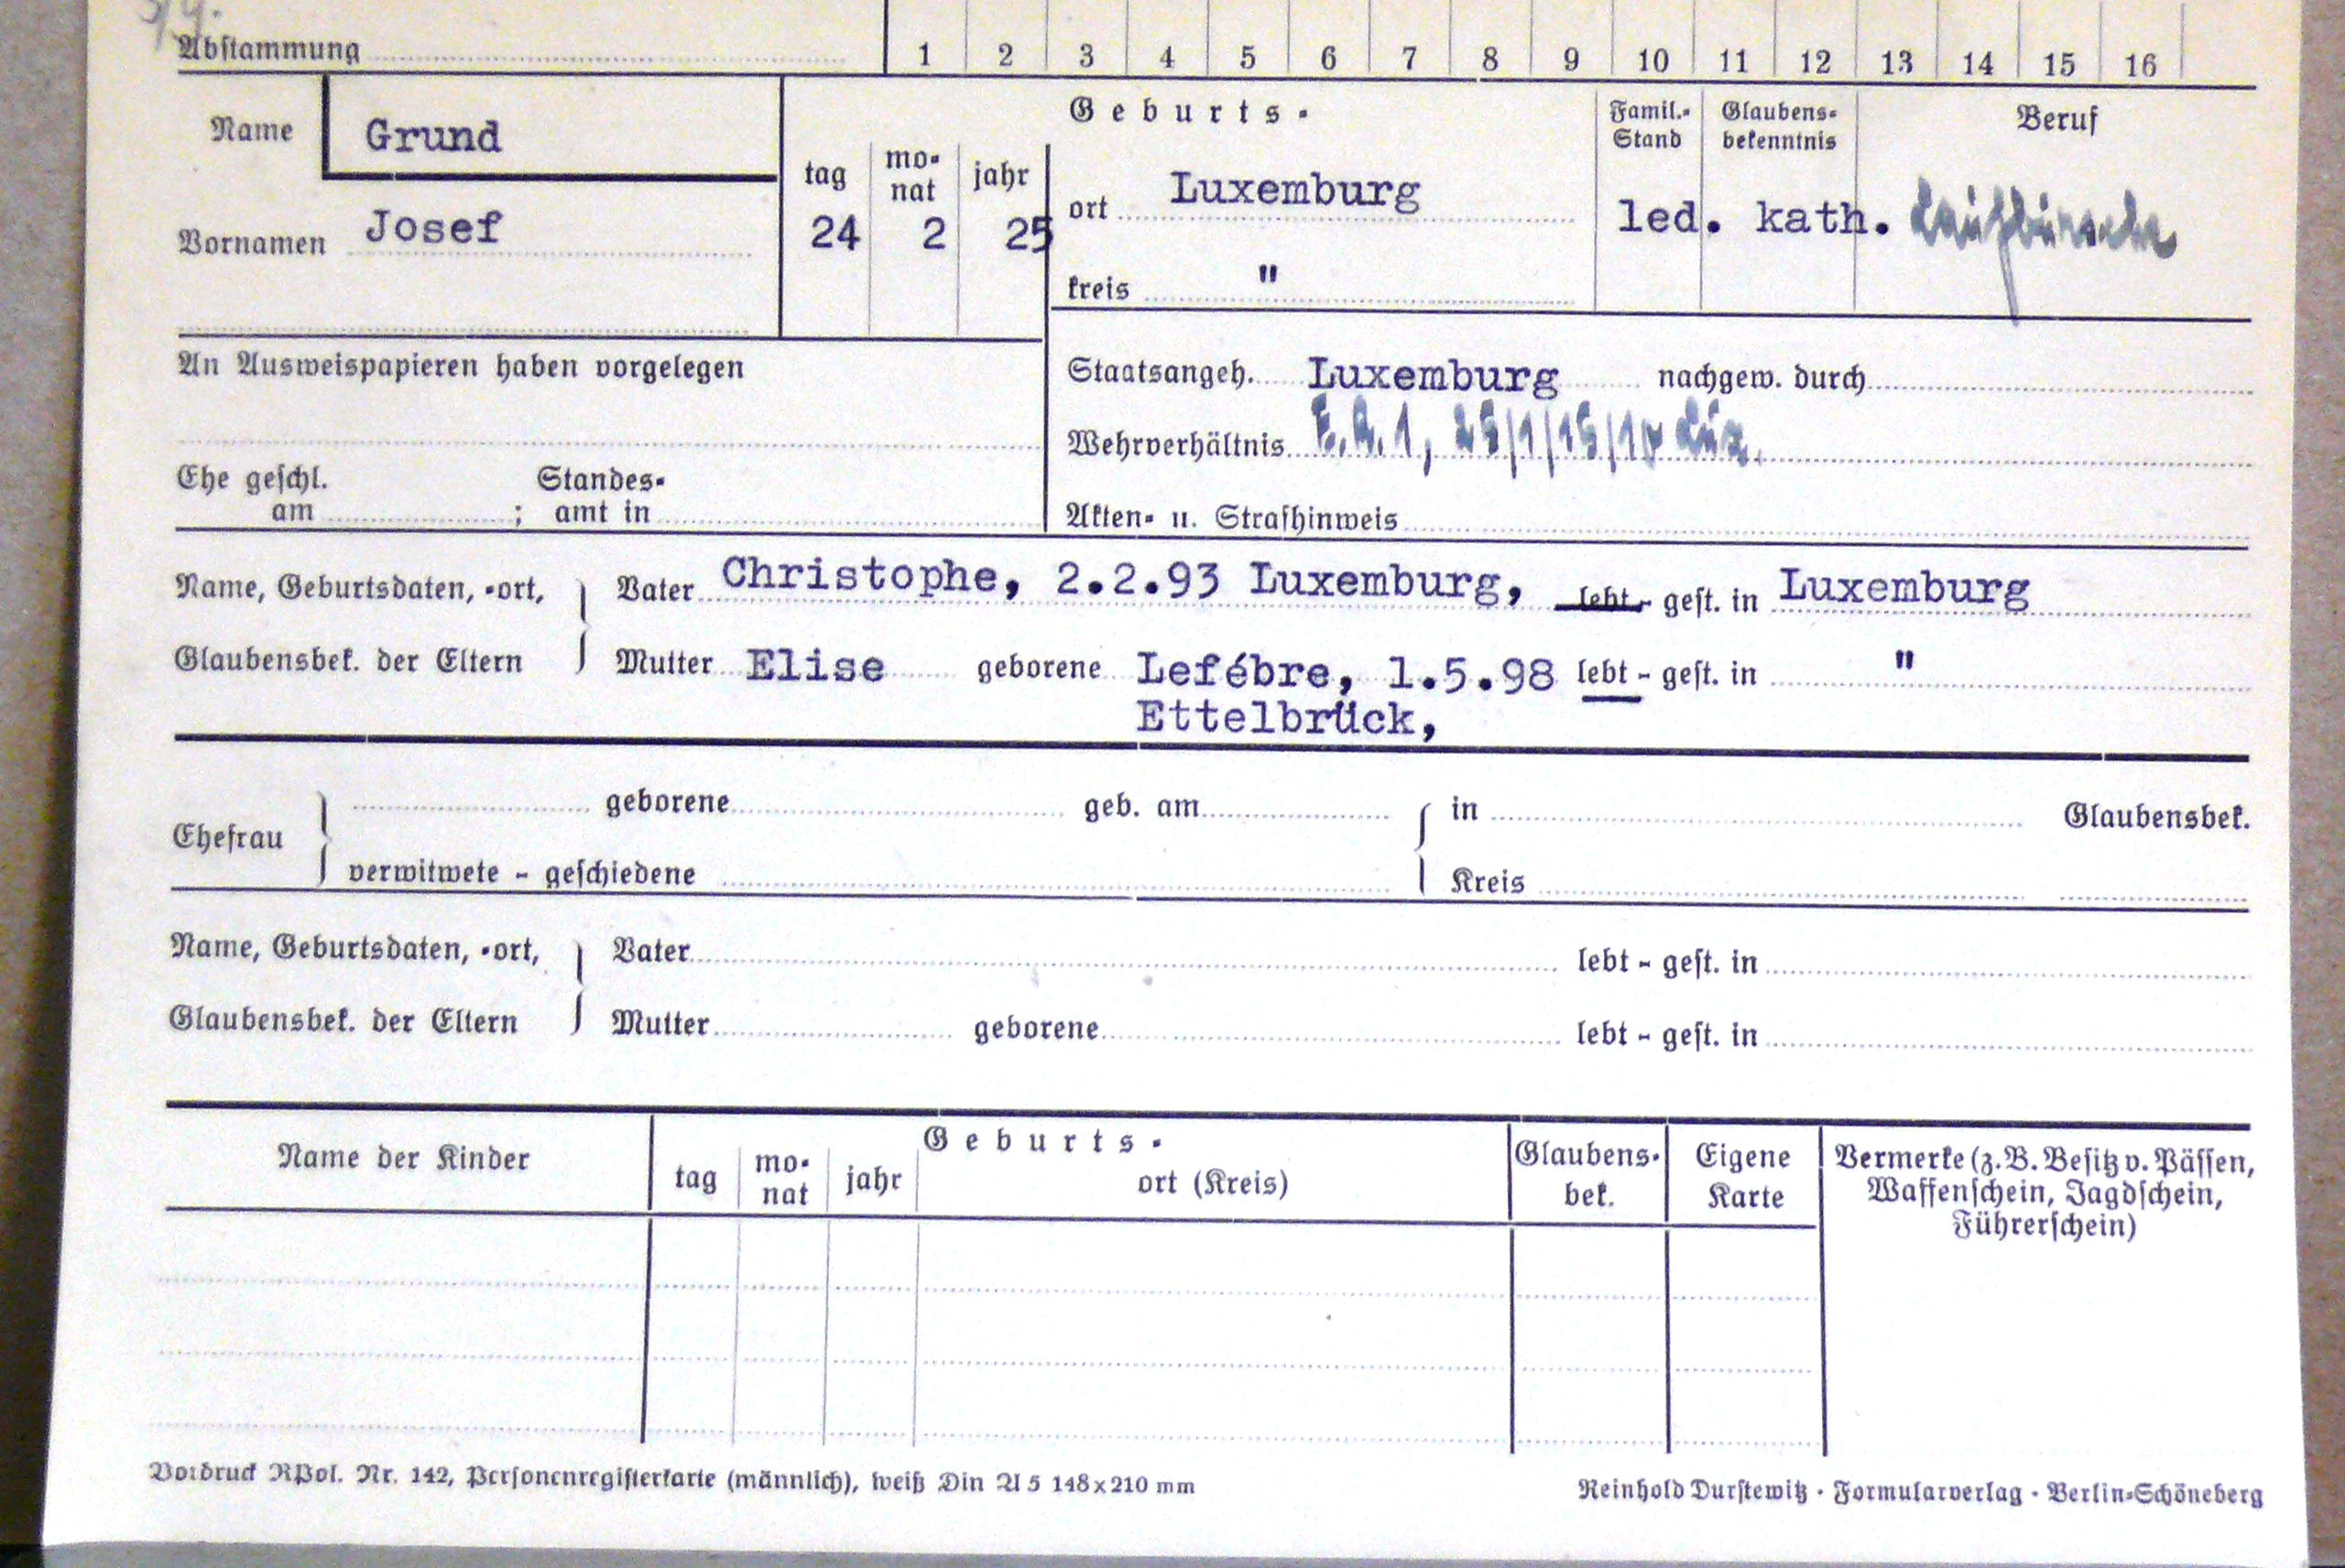 Abstammung 1 2 3 4 5 6 7 8 9 10 11 12 13 14 15 16
Name Grund
Vornamen Josef
Geburts-
tag mo-nat jahr
24 2 25
ort Luxemburg
kreis "
Famil.-Stand
led.
Glaubens-bekenntnis
kath.
Beruf
Laufbursche
An Ausweispapieren haben vorgelegen
Staatsangeh. Luxemburg nachgew. durch
Wehrverhältnis E.R.1, 25/1/15/10 Lux.
Ehe geschl. am ; Standes-amt in
Akten- u. Strafhinweis
Name, Geburtsdaten, -ort, Vater Christophe, 2.2.93 Luxemburg, lebt - gest. in Luxemburg
Glaubensbek. der Eltern Mutter Elise geborene Lefébre, 1.5.98 lebt - gest. in "
Ettelbrück,
Ehefrau geborene geb. am in Glaubensbek.
verwitwete - geschiedene Kreis
Name, Geburtsdaten, -ort, Vater lebt - gest. in
Glaubensbek. der Eltern Mutter geborene lebt - gest. in
Name der Kinder
Geburts-
tag mo-nat jahr ort (Kreis)
Glaubens-bek.
Eigene Karte
Vermerke (z. B. Besitz v. Pässen,
Waffenschein, Jagdschein,
Führerschein)
Vordruck RPol. Nr. 142, Personenregisterkarte (männlich), weiß Din A 5 148x210 mm
Reinhold Durstewitz · Formularverlag · Berlin-Schöneberg